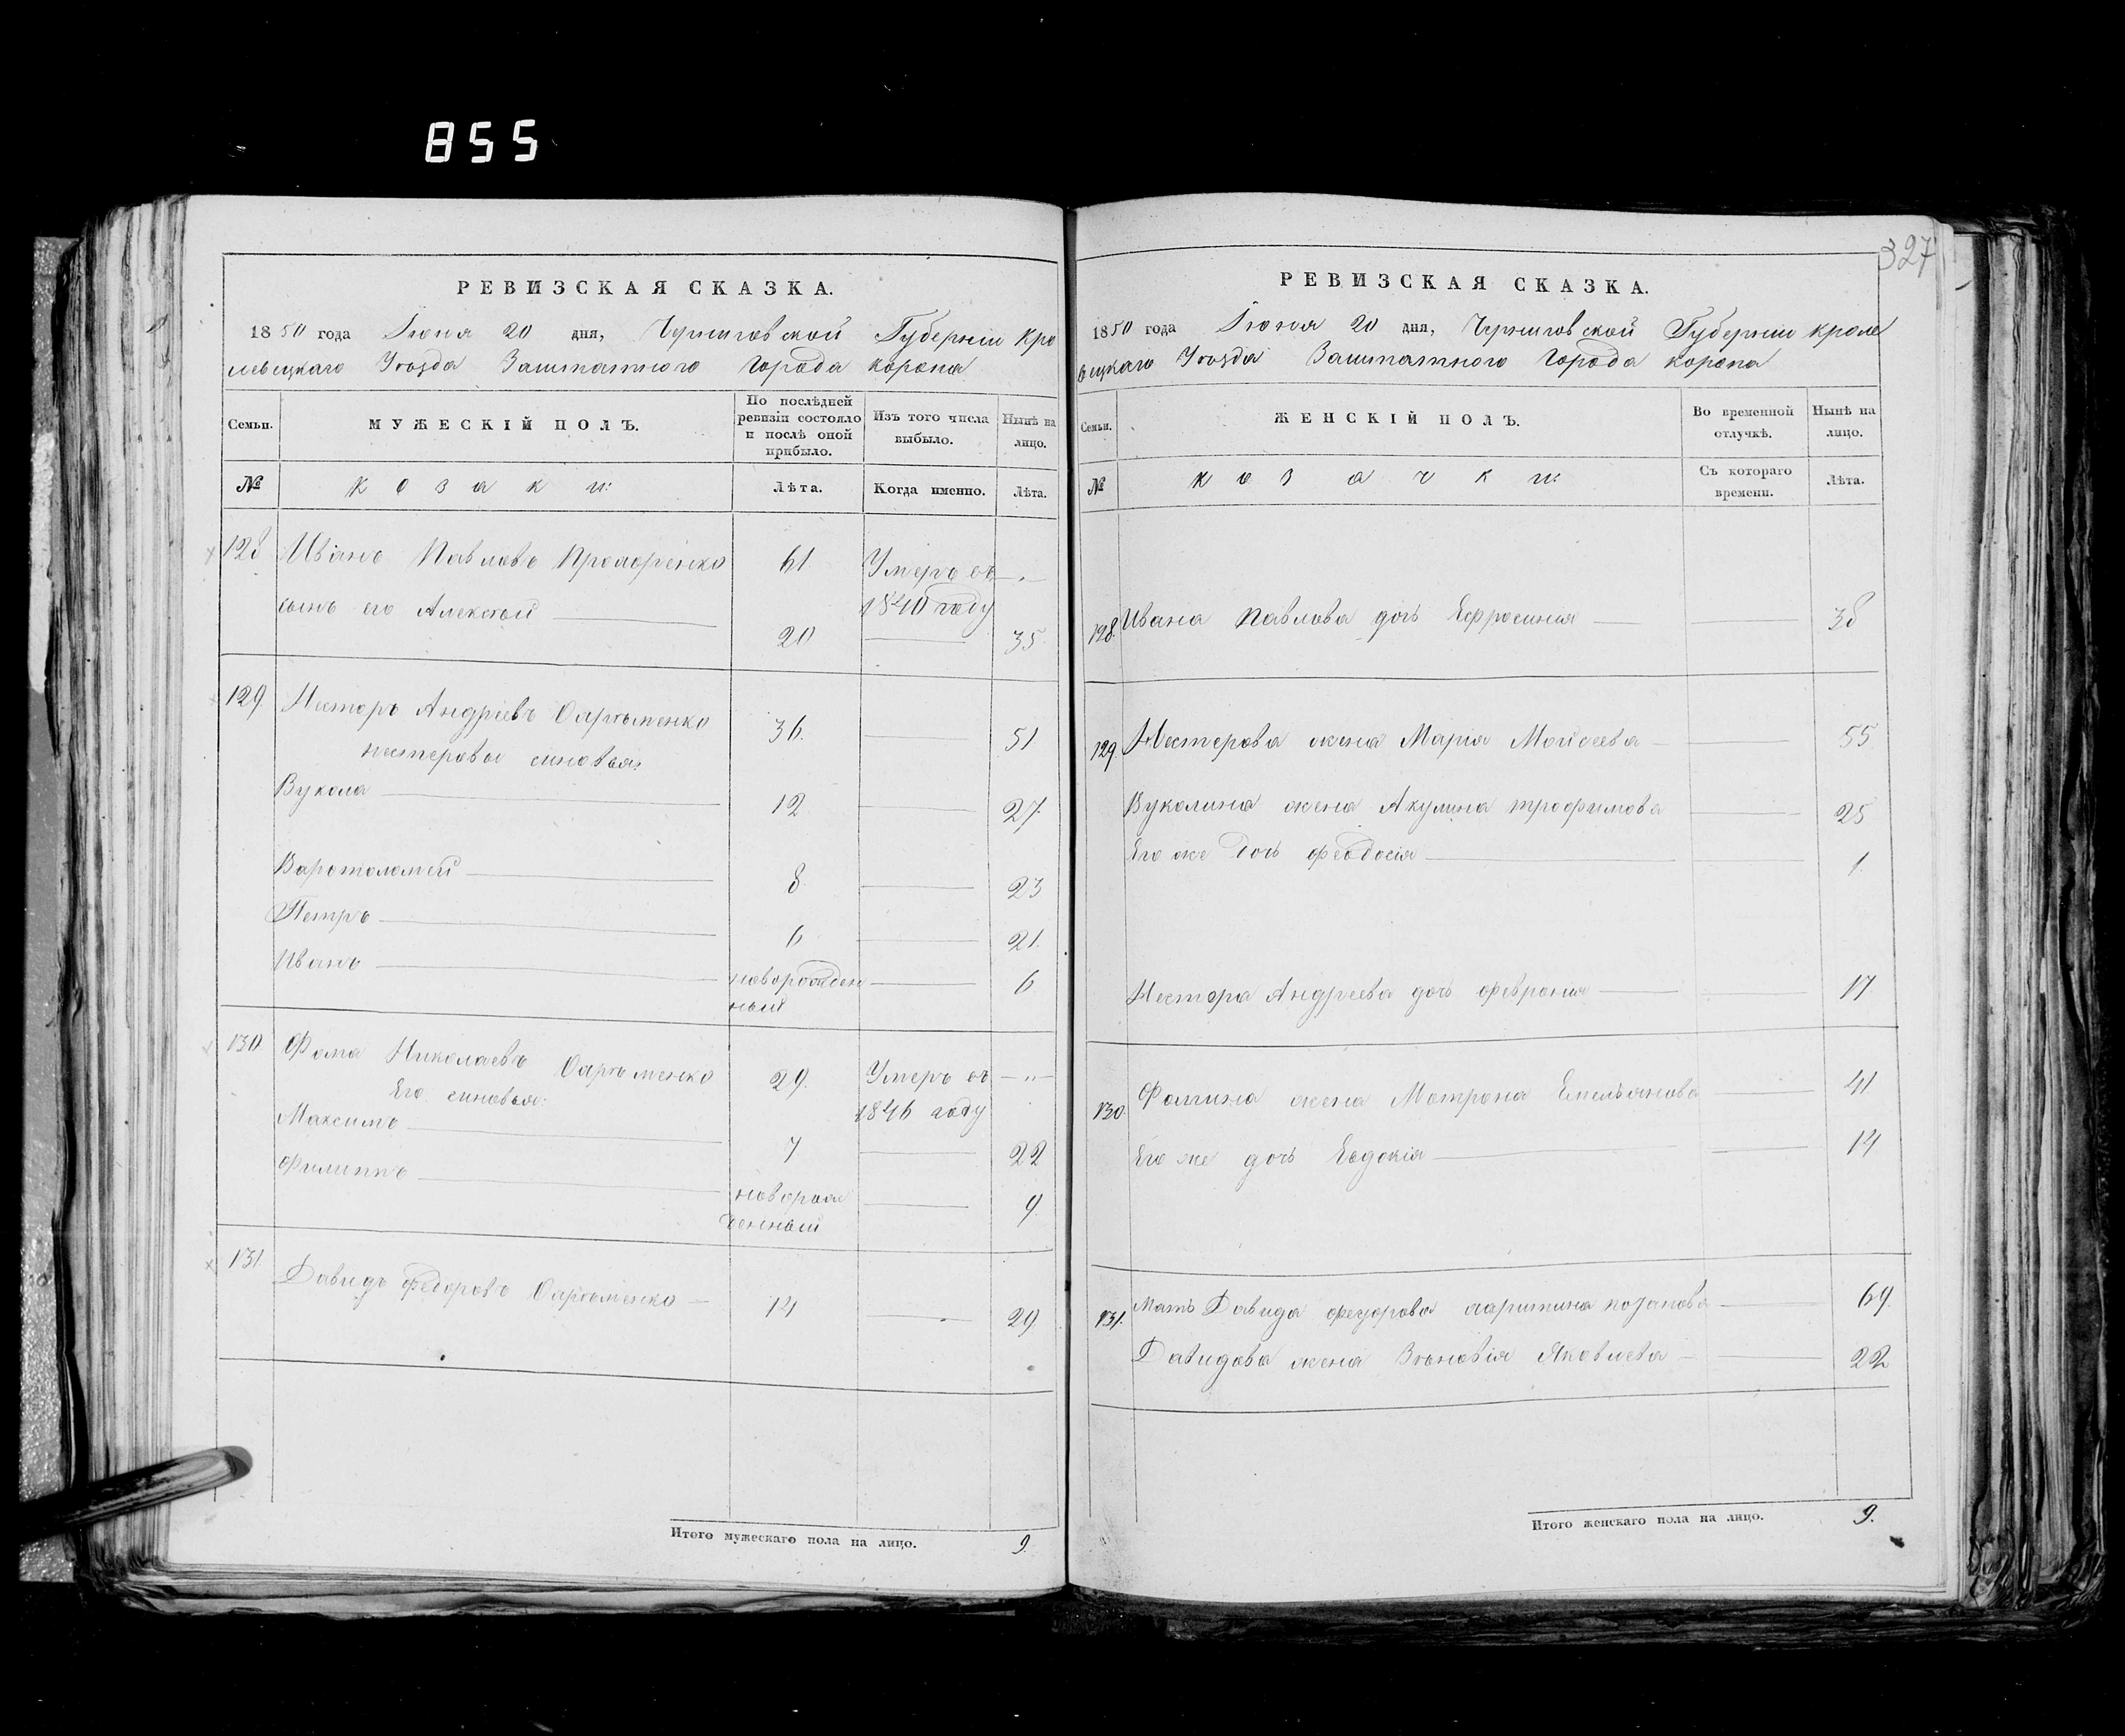 855
327
РЕВИЗСКАЯ СКАЗКА.
1850 года Іюня 20 дня, Черниговской Губерніи Кро
левецкаго Уѣзда Заштатного Города Коропа
Семьи. МУЖЕСКІЙ ПОЛЪ. По послѣдней ревизіи состояло и послѣ оной прибыло. Изъ того числа выбыло. Нынѣ на лицо.
№ Козаки: Лѣта. Когда именно. Лѣта.
128 Иванъ Павловъ 61 Умеръ въ —"—
сынъ его Алексѣй 1840 году
20 35.
129. Несторъ Андреевъ 36. 51
нестеровы синовья:
Вукола 12 27.
Варфоломей 8. 23
Петръ 6 21.
Иванъ новорожден 6
ный
130 Фома Николаевъ 29. Умеръ въ —"—
Его синовья: 1846 году
Максимъ 7 22
Филиппъ новорож 9.
денный
131. Давидъ Федоровъ 14 29.
Итого мужескаго пола на лицо. 9.
РЕВИЗСКАЯ СКАЗКА.
1850 года Іюня 20 дня, Черниговской Губерніи Кроле
вецкаго Уѣзда Заштатного Города Коропа
Семьи. ЖЕНСКІЙ ПОЛЪ. Во временной отлучкѣ. Нынѣ на лицо.
№ Козачки: Съ котораго времени. Лѣта.
128. Ивана Павлова дочь Ефросинія 38
129. Нестерова жена Марія Мойсеева 55
Вуколина жена Акулина трофимова 25
Его же дочь феодосія 1.
Нестора Андреева дочь феврония 17
130. Фомина жена Матрона Емельянова 41
Его же дочь Евдокія 14
131. Мать Давида федорова 69.
Давидова жена Зѣновія Яковлева 22
Итого женскаго пола на лицо. 9.